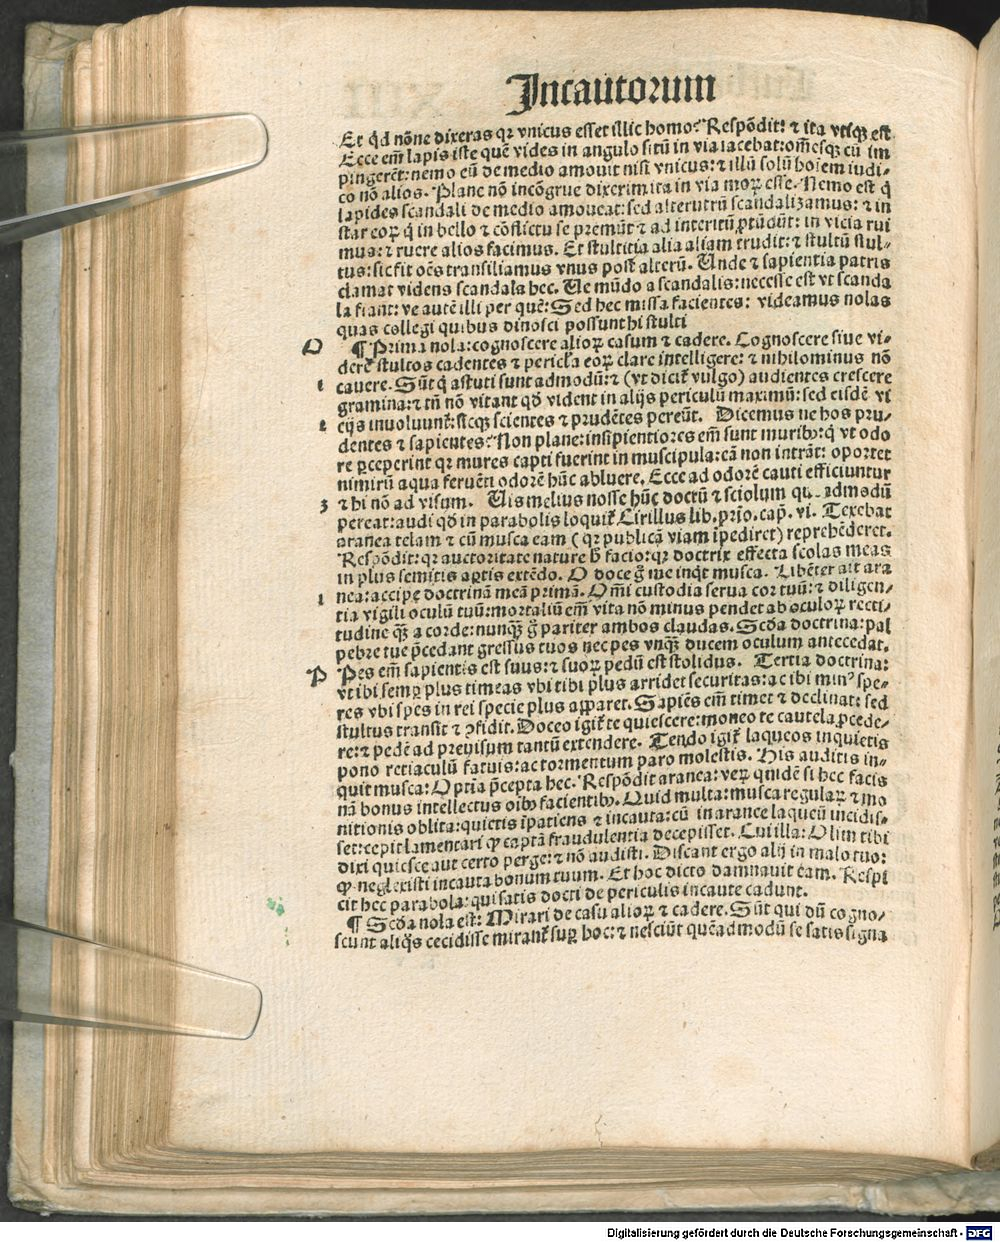 Incautorum
Et qd nõne dixeras qꝛ vnicus esset illic homo? Respõdit: ⁊ ita vtiqꝫ est
Ecce em̃ lapis iste quẽ vides in angulo sitũ in via iacebat: om̃esqꝫ cũ im
pingerẽt: nemo eũ de medio amouit nisi vnicus: ⁊ illũ solũ hoĩem iudi⸗
co nõ alios. Plane nõ incõgrue dixerim ita in via moꝝ esse. Nemo est q̃
lapides scandali de medio amoueat: sed alterutrũ scandalizamus: ⁊ in
star eoꝝ q̃ in bello ⁊ cõflictu se premũt ⁊ ad interitũ ꝓtũdũt: in vicia rui
mus: ⁊ ruere alios facimus. Et stultitia alia aliam trudit: ⁊ stultũ stul⸗
tus: sic fit oẽs transiliamus vnus post alterũ. Unde ⁊ sapientia patris
clamat videns scandala hec. Ue mũdo a scandalis: necesse est vt scanda
la fiant: ve autẽ illi per quẽ: Sed hec missa facientes: videamus nolas
quas collegi quibus dinosci possunt hi stulti
O ¶ Prima nola: cognoscere alioꝝ casum ⁊ cadere. Cognoscere siue vi⸗
dere stultos cadentes ⁊ pericl̃a eoꝝ clare intelligere: ⁊ nihilominus nõ
1 cauere. Sũt q̃ astuti sunt admodũ: ⁊ (vt dicit̃ vulgo) audientes crescere
gramina: ⁊ tñ nõ vitant qď vident in alijs periculũ maximũ: sed eisdẽ vi
2 cijs inuoluunt̃: sicqꝫ scientes ⁊ prudẽtes pereũt. Dicemus ne hos pru⸗
dentes ⁊ sapientes? Non plane: insipientiores em̃ sunt muribꝰ: q̃ vt odo
re ꝑceperint qꝛ mures capti fuerint in muscipula: eã non intrãt: oportet
nimirũ aqua feruẽti odorẽ hũc abluere. Ecce ad odorẽ cauti efficiuntur
3 ⁊ hi nõ ad visum. Uis melius nosse hũc doctũ ⁊ sciolum qu admodũ
pereat: audi qď in parabolis loquit̃ Cirillus lib. pr̃io. cap̃. vi. Texebat
aranea telam ⁊ cũ musca eam (qꝛ publicã viam ĩpediret) reprehẽderet.
Respõdit: qꝛ auctoritate nature h̃ facio: qꝛ doctrix effecta scolas meas
in plus semitis aꝑtis extẽdo. O doce g̃ me inq̃t musca. Libẽter ait ara
1 nea: accipe doctrinã meã primã. Om̃i custodia serua cor tuũ: ⁊ diligen⸗
tia vigili oculũ tuũ: mortaliũ em̃ vita nõ minus pendet ab oculoꝝ recti⸗
tudine qꝫ̃ a corde: nunqꝫ̃ g̃ pariter ambos claudas. Scďa doctrina: pal
pebre tue p̃cedant gressus tuos nec pes vnqꝫ̃ ducem oculum antecedat.
P Pes em̃ sapientis est suus: ⁊ suoꝝ pedũ est stolidus. Tertia doctrina:
vt ibi semꝑ plus timeas vbi tibi plus arridet securitas: ac ibi minꝰ spe⸗
res vbi spes in rei specie plus apparet. Sapiẽs em̃ timet ⁊ declinat: sed
stultus transit ⁊ ꝯfidit. Doceo igit̃ te quiescere: moneo te cautela ꝓcede⸗
re: ⁊ pedẽ ad preuisum tantũ extendere. Tendo igit̃ laqueos inquietis
pono retiaculũ fatuis: ac tormentum paro molestis. His auditis in⸗
quit musca: Optĩa p̃cepta hec. Respõdit aranea: veꝝ quidẽ si hec facis
nã bonus intellectus oĩbꝰ facientibꝰ. Quid multa: musca regulaꝝ ⁊ mo
nitionis oblita: quietis ĩpatiens ⁊ incauta: cũ in aranee laqueũ incidis⸗
set: cepit lamentari ꝙ captã fraudulentia decepisset. Cui illa: Olim tibi
dixi quiesce aut certo perge: ⁊ nõ audisti. Discant ergo alij in malo tuo:
ꝙ neglexisti incauta bonum tuum. Et hoc dicto damnauit eam. Respi
cit hec parabola: qui satis docti de periculis incaute cadunt.
¶ Scďa nola est: Mirari de casu alioꝝ ⁊ cadere. Sũt qui dũ cogno⸗
scunt aliq̃s cecidisse mirant̃ suꝑ hoc: ⁊ nesciũt quẽadmodũ se satis signa
Digitalisierung gefördert durch die Deutsche Forschungsgemeinschaft - DFG